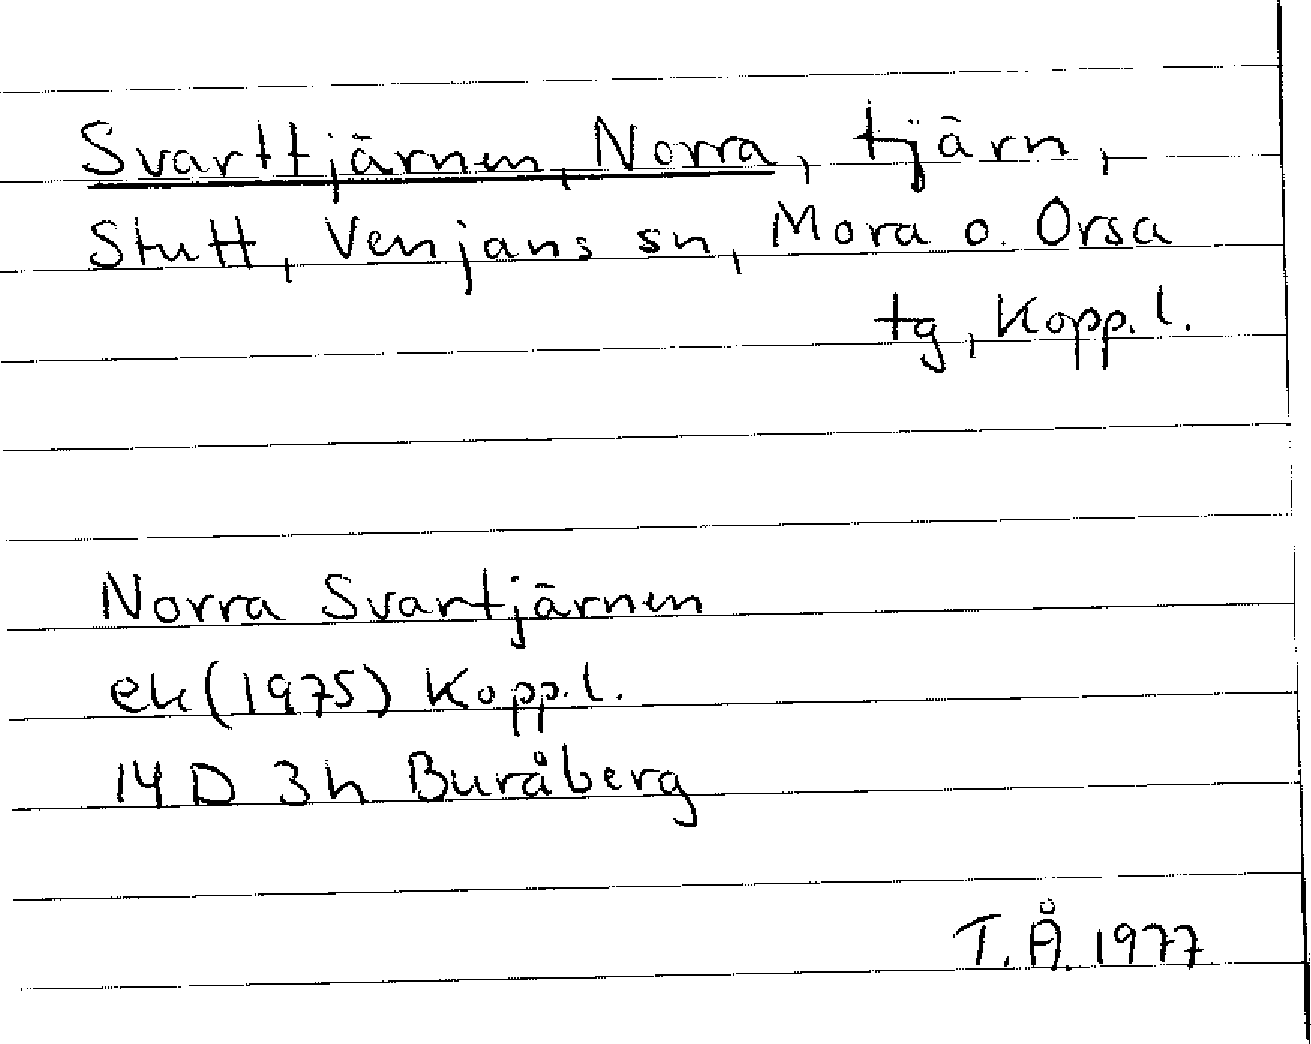 Svarttjärnen, Norra, tjärn,
Stutt, Venjans sn, Mora o. Orsa
tg, Kopp. l.
Norra Svartjärnen
ek (1975) Kopp. l.
14 D 3h Buråberg
T. Å. 1977